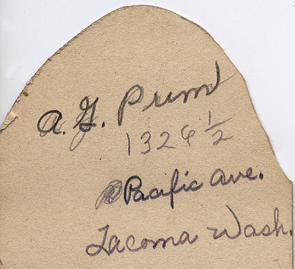 A. G. Prim
1324 1/2
Pacific Ave.
Tacoma Wash.